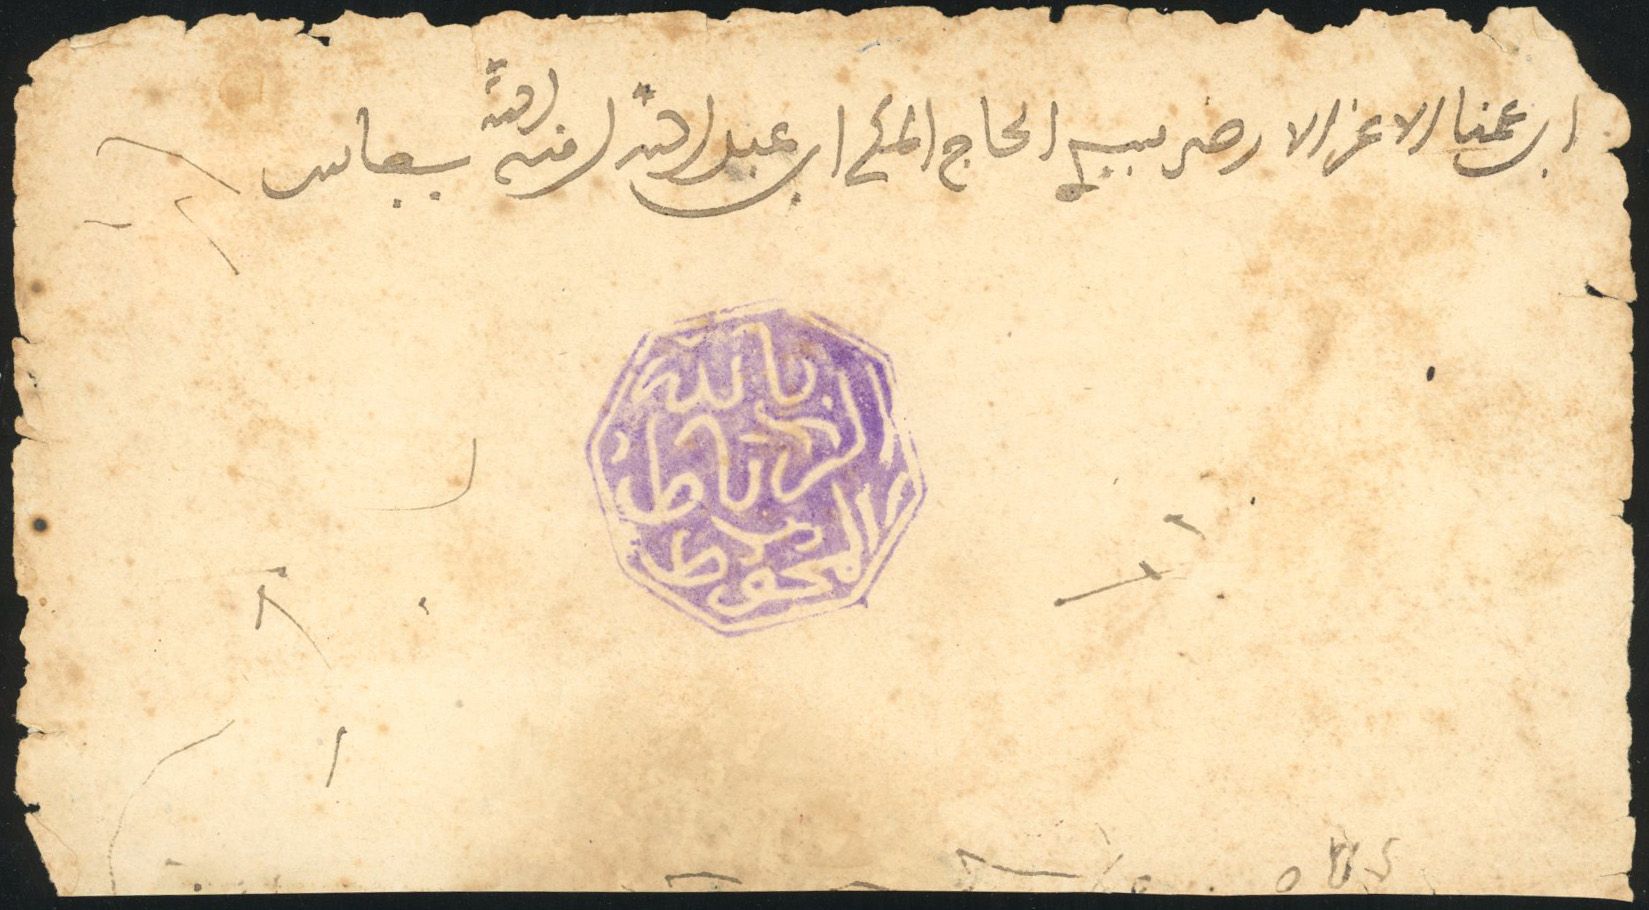 ابن عمنا الاعز الارضى سيدي الحاج المكي ابن عبد الله امنه الله بفاس
بالله
الرباط
المحفوظ